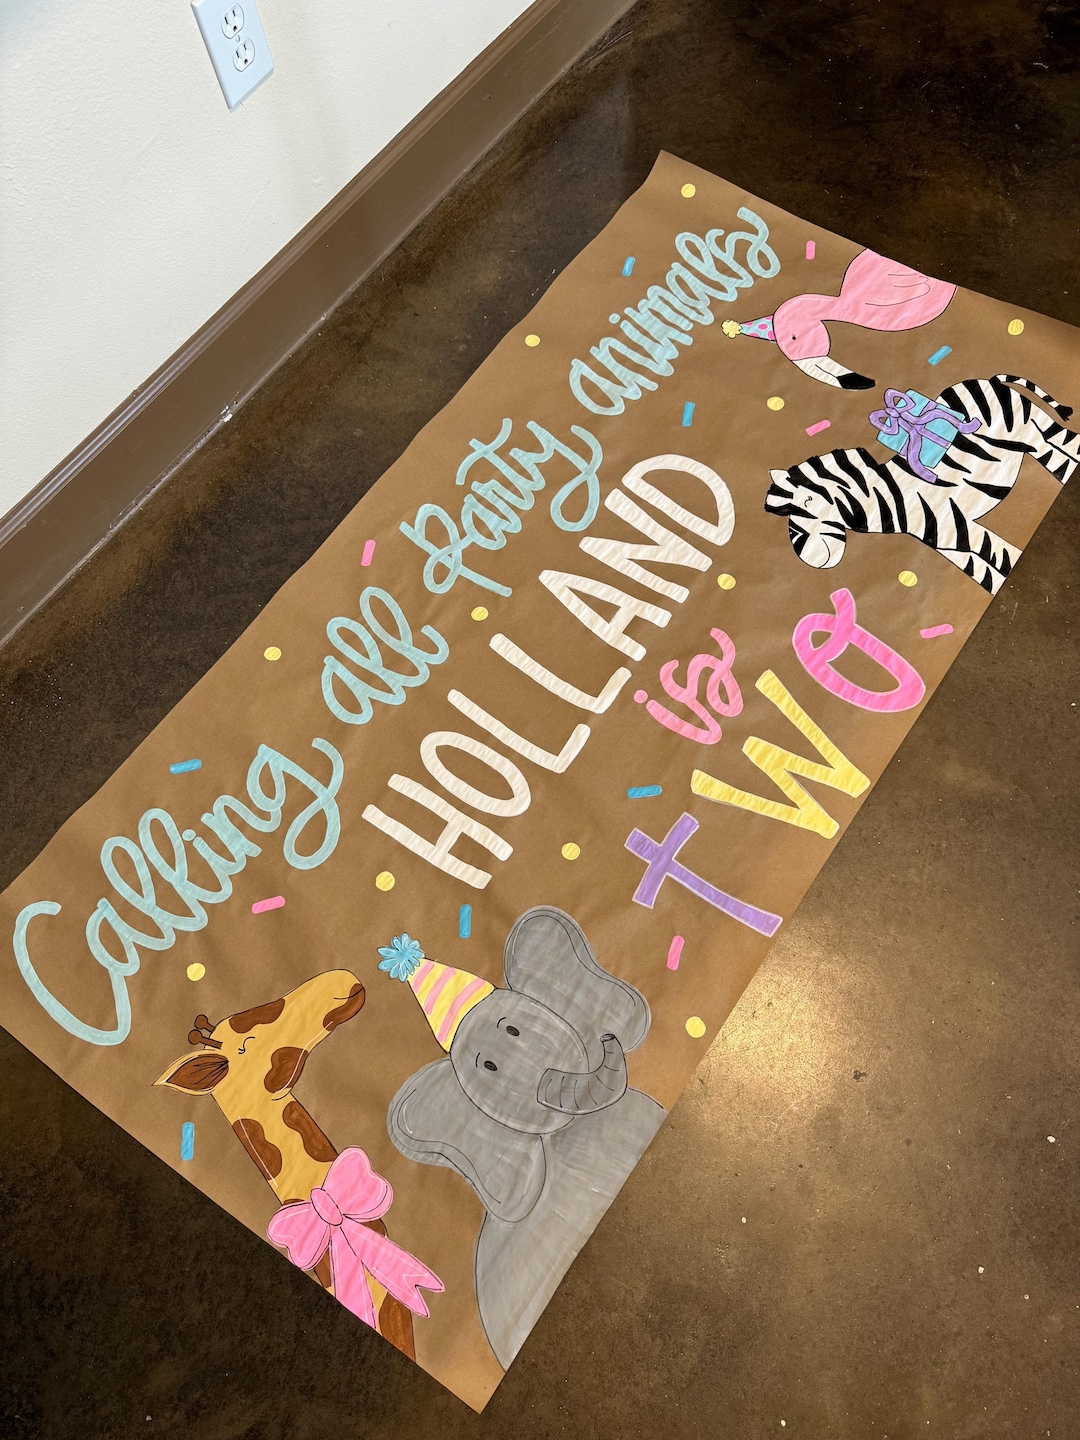 Calling all party animals
HOLLAND
is
TWO